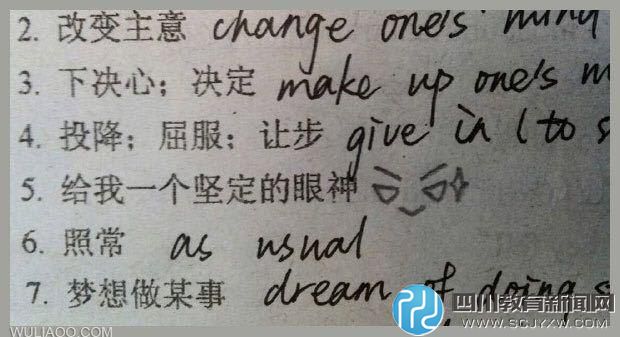 2. 改变主意 change one's mind
3. 下决心；决定 make up one's m
4. 投降；屈服；让步 give in (to s
5. 给我一个坚定的眼神
6. 照常 as usual
7. 梦想做某事 dream of doing s
四川教育新闻网
WWW.SCJYXW.COM
WULIAOO.COM